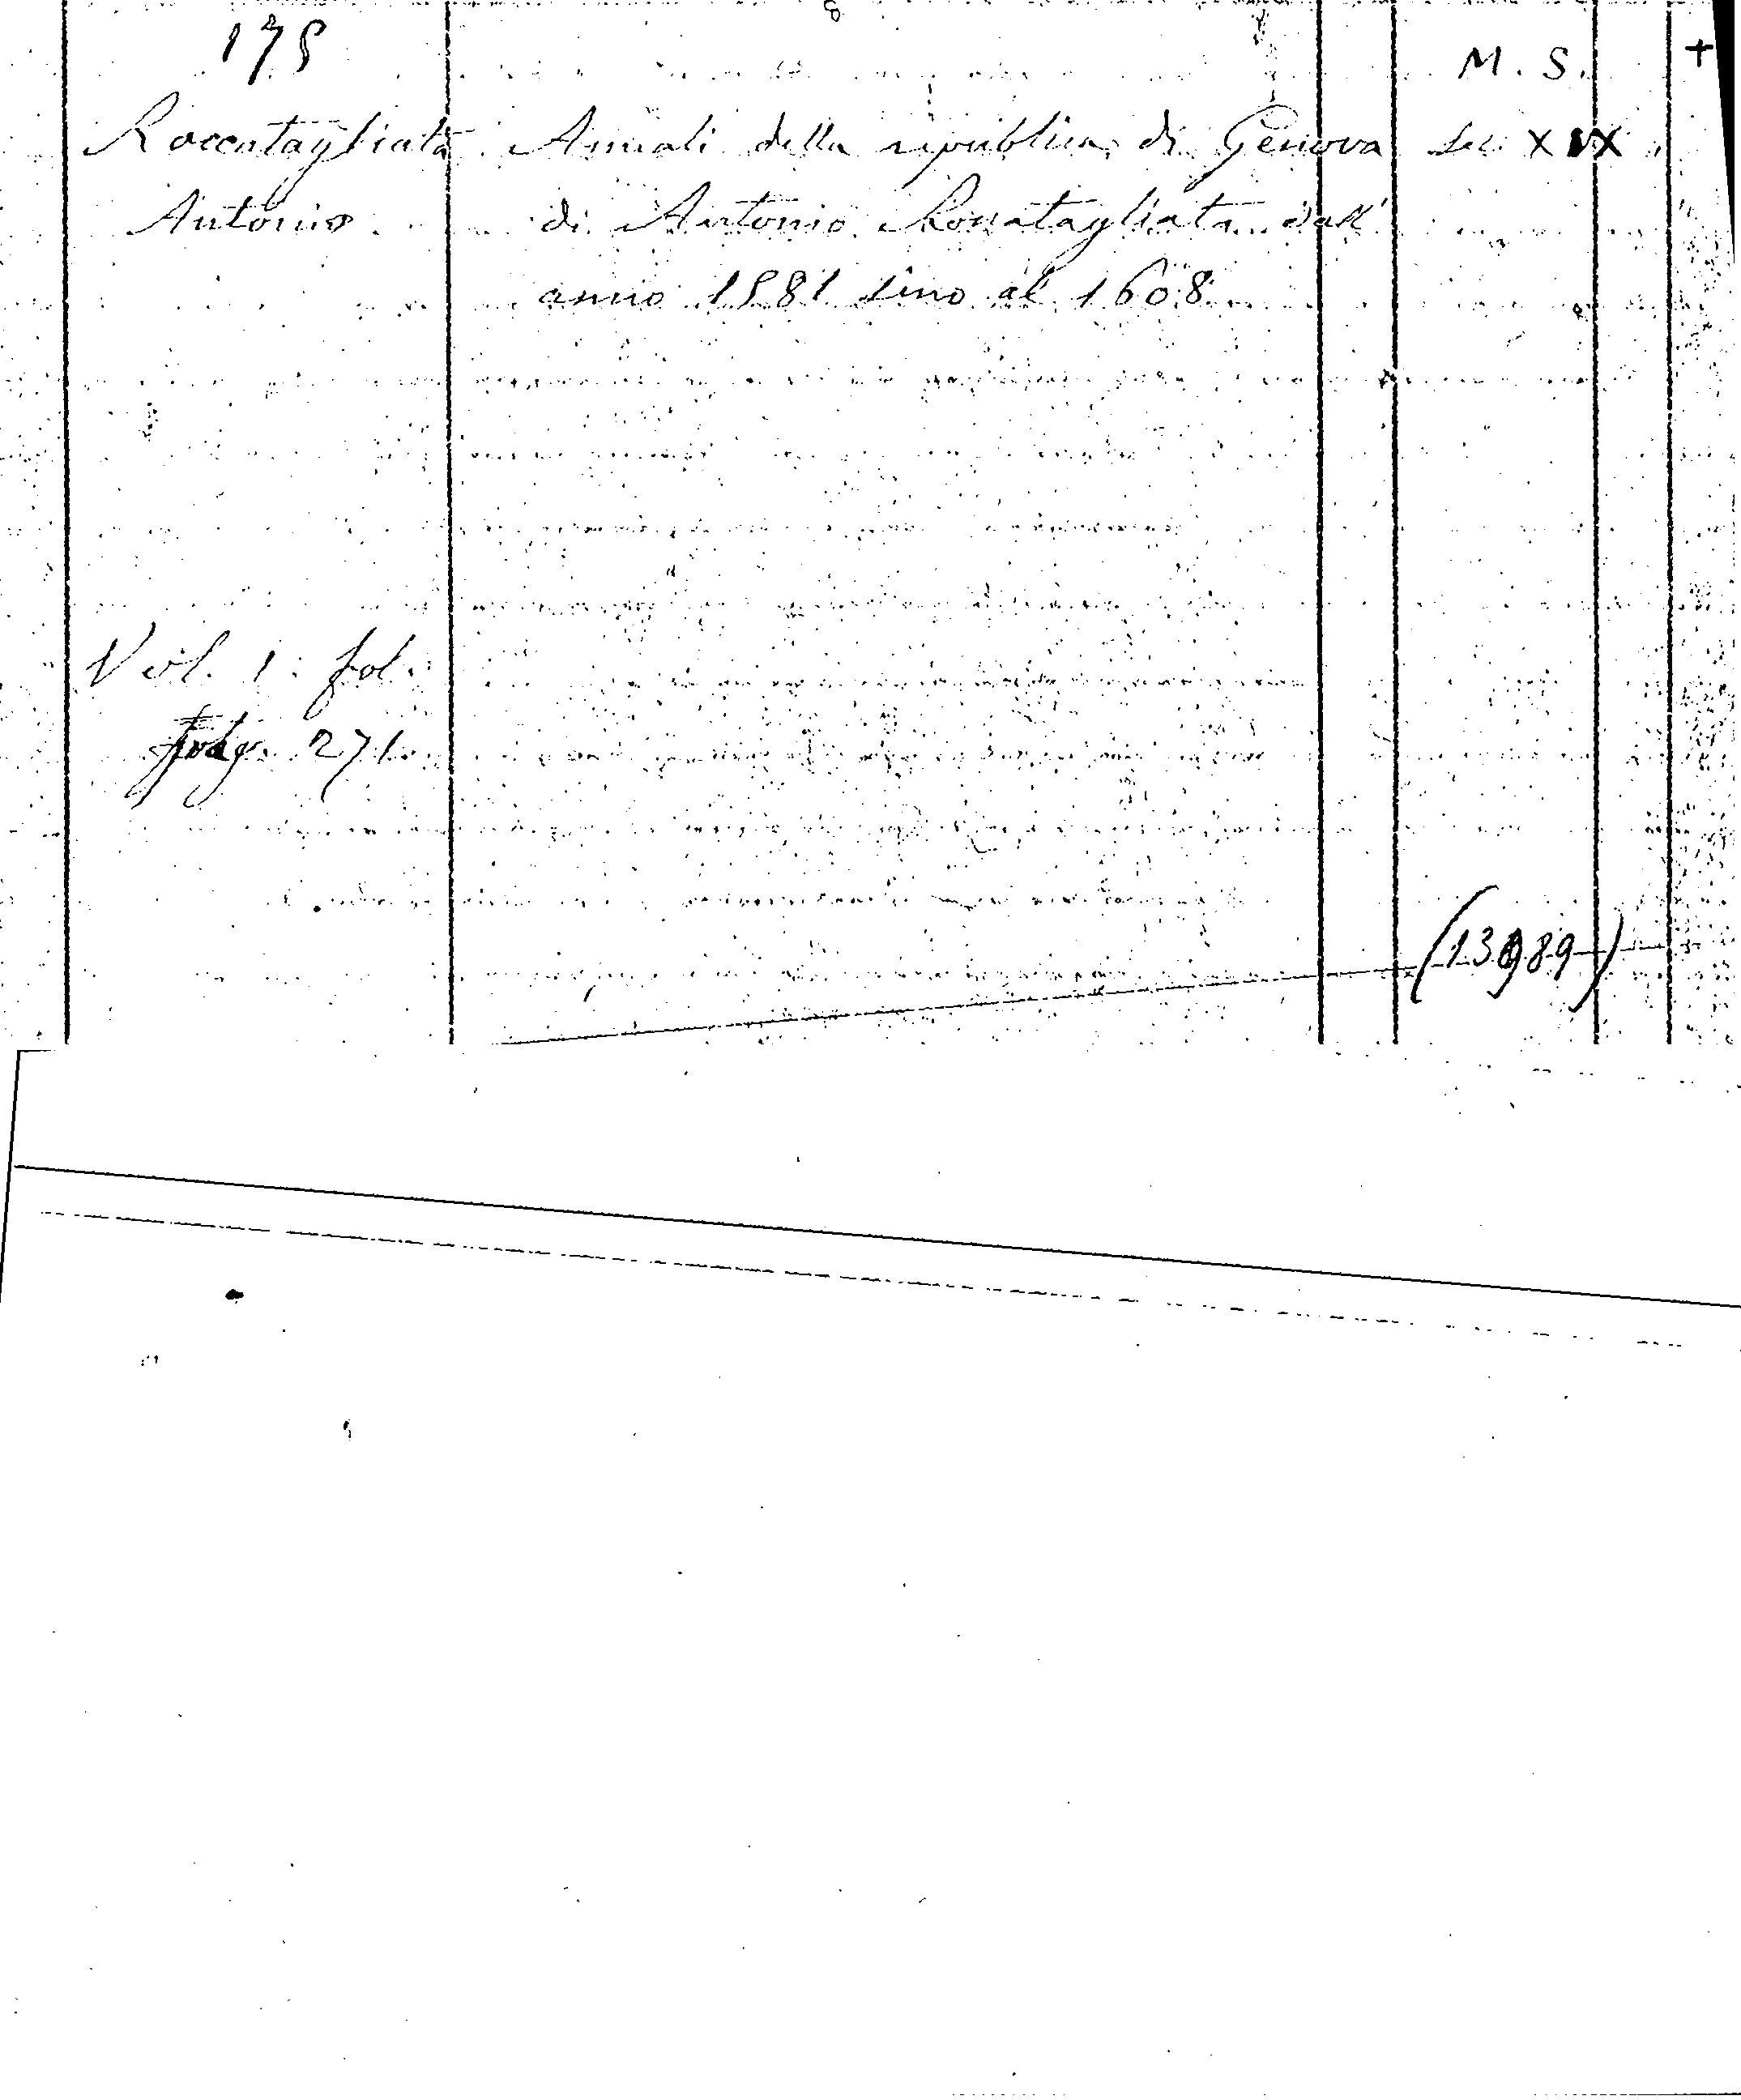 175
M. S. +
Roccatagliata Annali della republica di Genova sec. XIX
Antonio di Antonio Roccatagliata dall'
anno 1581 sino al 1608
Vol. 1. fol.
271.
(13989)